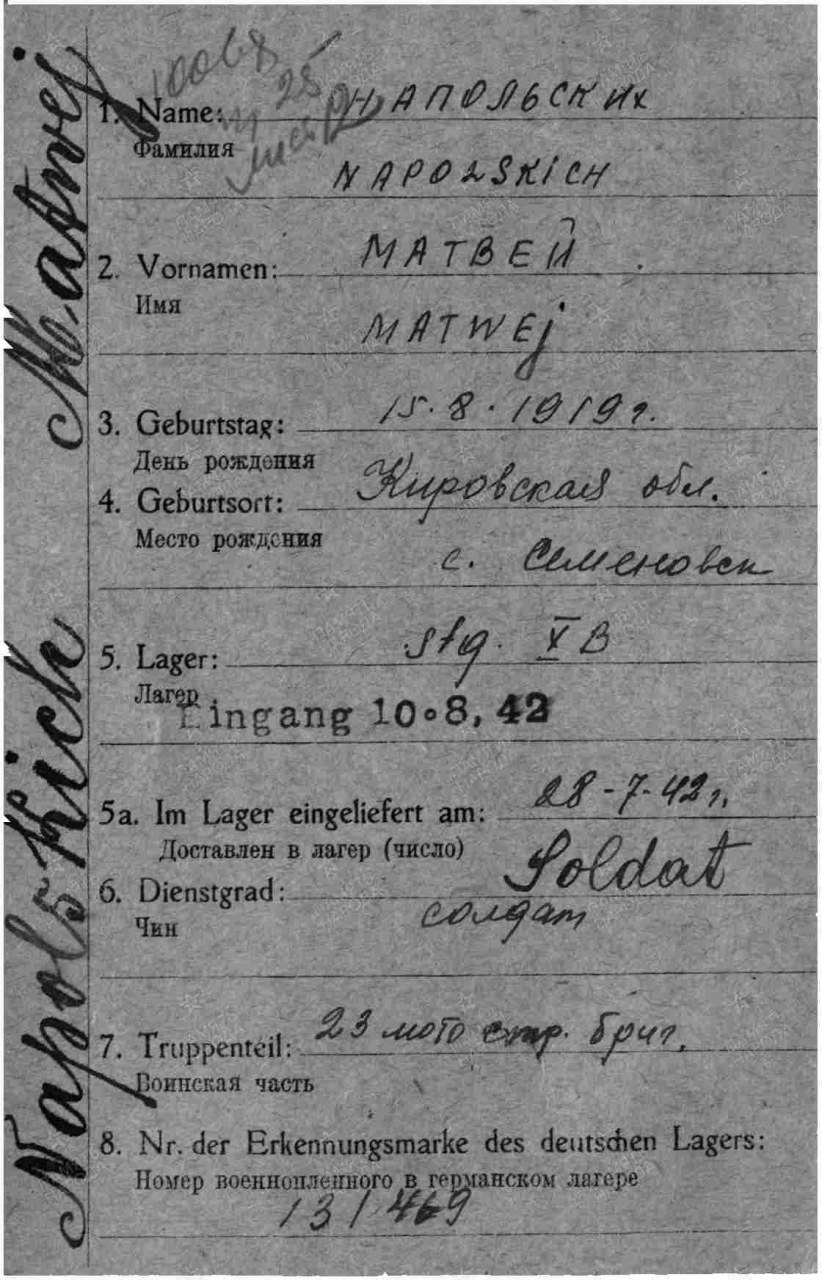 Napolskich Matwej
10068
25
1. Name: НАПОЛЬСКИХ
Фамилия
NAPOLSKICH
2. Vornamen: МАТВЕЙ
Имя
MATWEj
3. Geburtstag: 15.8.1919 г.
День рождения
4. Geburtsort: Кировская обл.
Место рождения
с. Семеновск
5. Lager: Stg. XB
Лагер
Eingang 10.8,42
5a. Im Lager eingeliefert am: 28-7-42 г.
Доставлен в лагер (число)
6. Dienstgrad: Soldat
Чин солдат
7. Truppenteil: 23 мото стр. бриг.
Воинская часть
8. Nr. der Erkennungsmarke des deutschen Lagers:
Номер военнопленного в германском лагере
131469